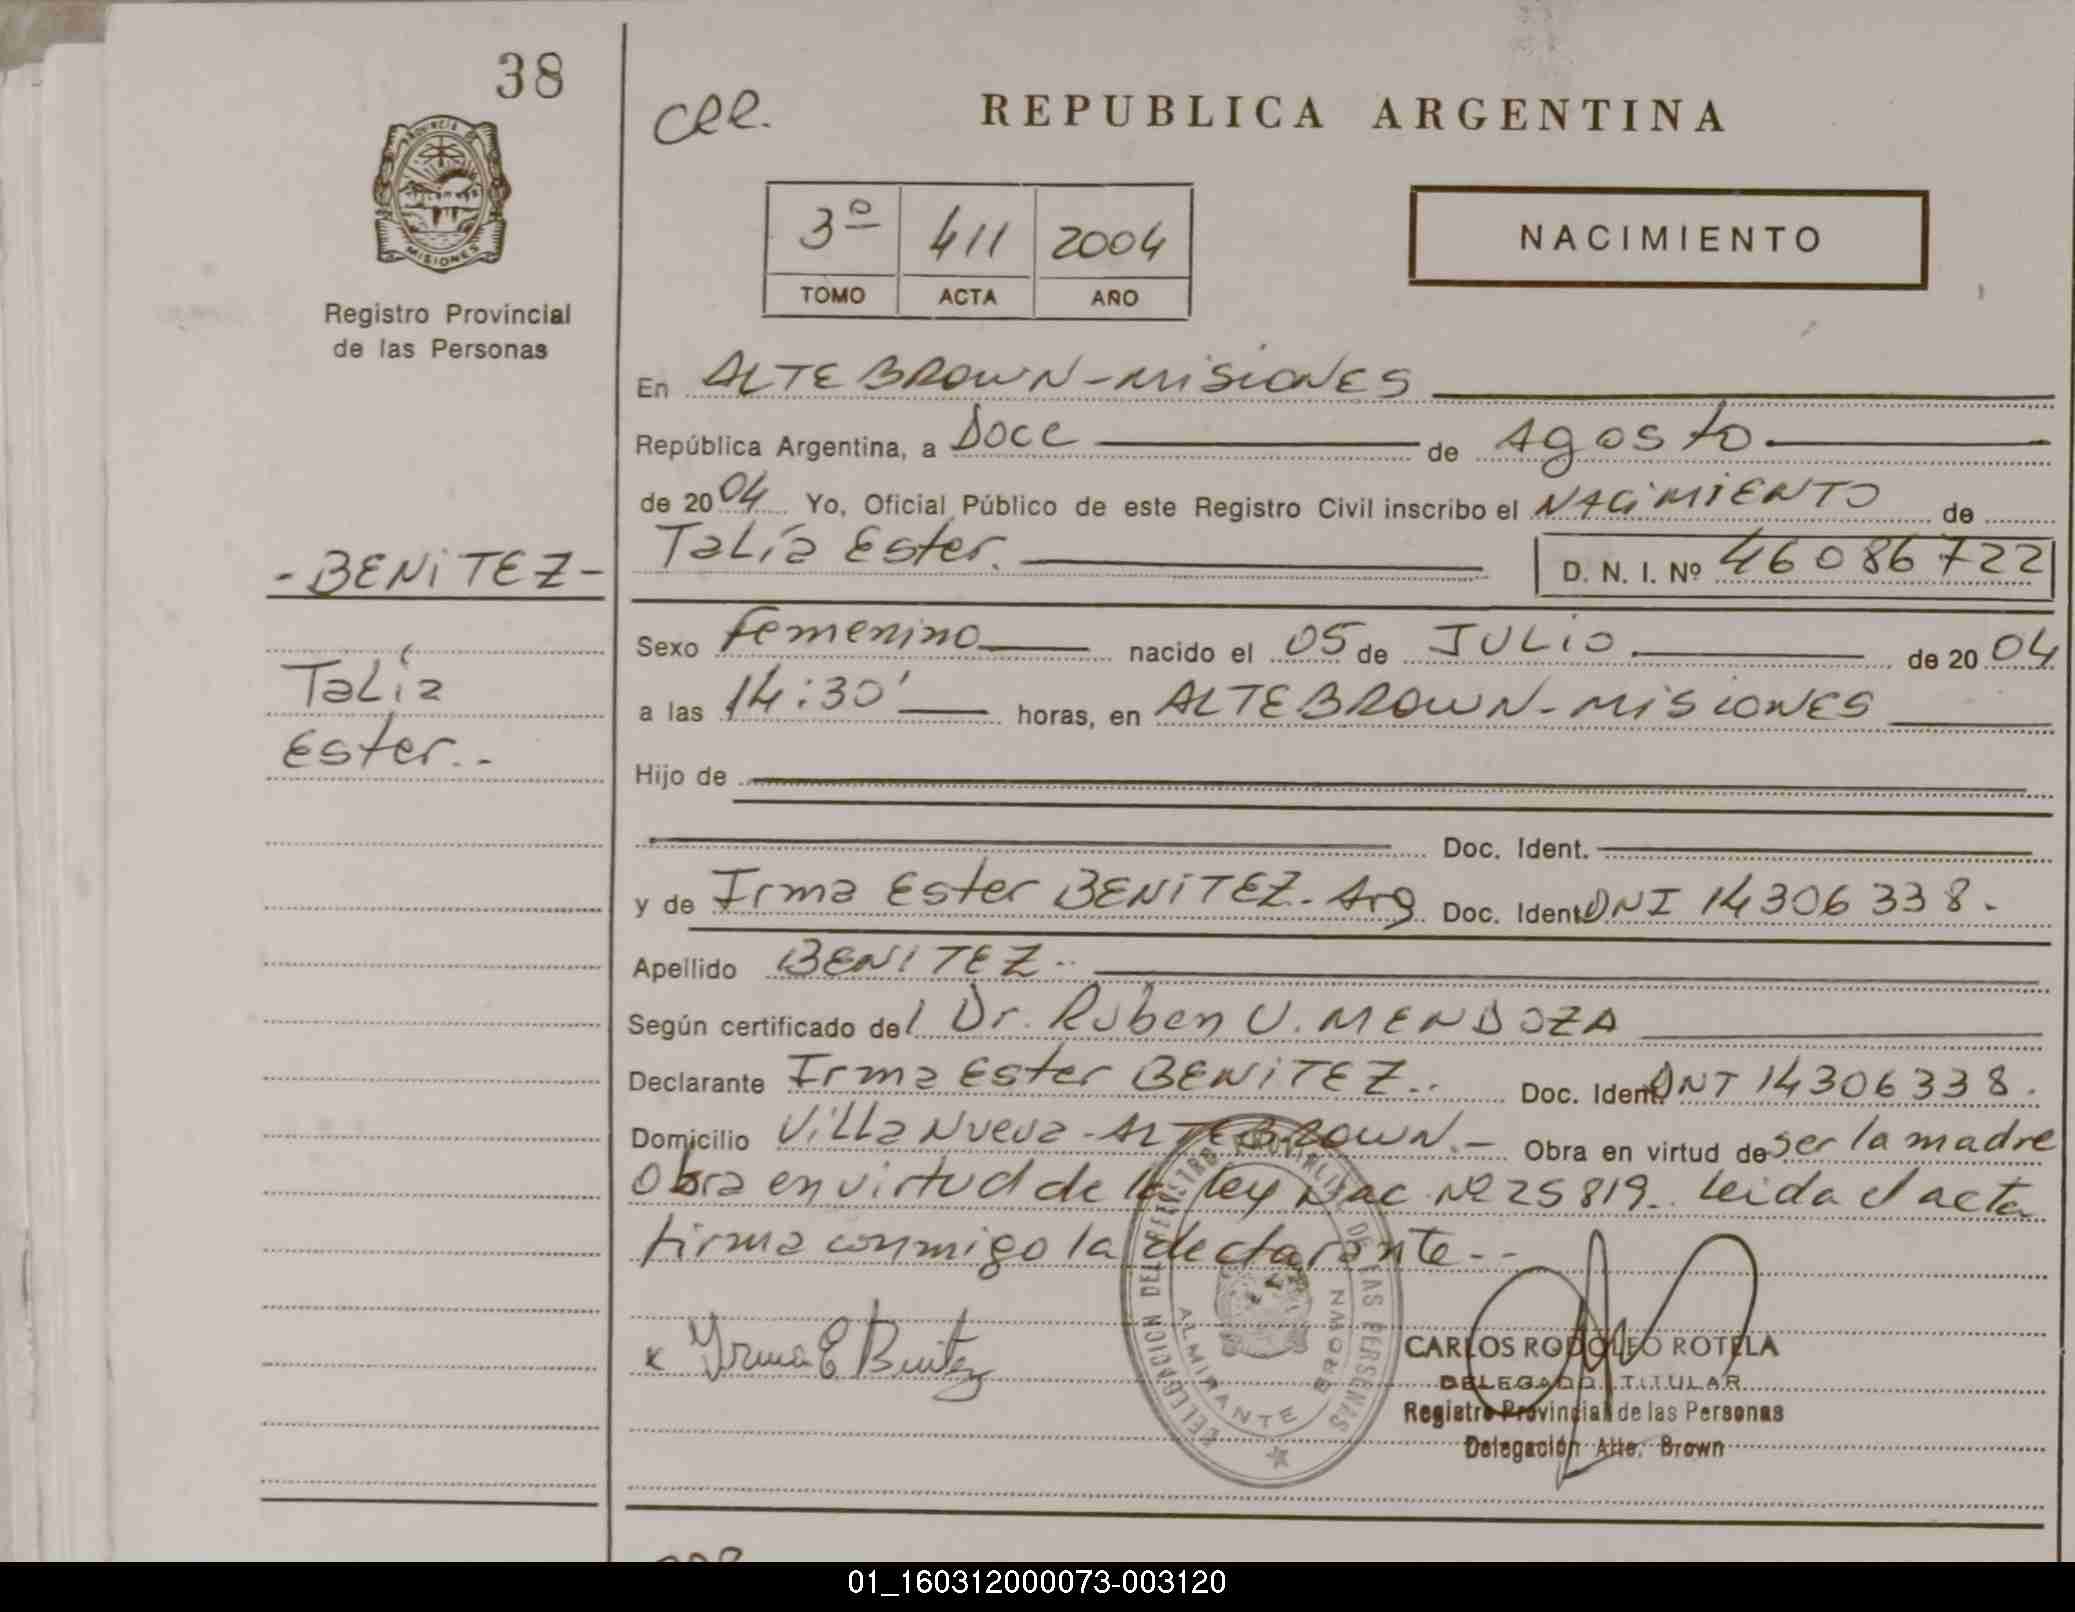 38
REPUBLICA ARGENTINA
PROVINCIA DE
MISIONES
3º 411 2004
TOMO ACTA AÑO
NACIMIENTO
Registro Provincial
de las Personas
En ALTE BROWN-MISIONES
República Argentina, a Doce de Agosto
de 2004 Yo, Oficial Público de este Registro Civil inscribo el NACIMIENTO de
Talía Ester. D. N. I. Nº 46086722
-BENITEZ-
Talía
Ester..-
Sexo Femenino nacido el 05 de JULIO de 2004
a las 14:30' horas, en ALTE BROWN-MISIONES
Hijo de
Doc. Ident.
y de Irma Ester BENITEZ.- Arg Doc. Ident. DNI 14306338.
Apellido BENITEZ..
Según certificado del Dr. Ruben U. MENDOZA
Declarante Irma Ester BENITEZ.. Doc. Ident. DNI 14306338.
Domicilio Villa Nueva-ALTE BROWN.- Obra en virtud de ser la madre
Obra en virtud de la ley Nac Nº 25819.. Leida el acta
firma conmigo la declarante--
x Yrma E Benitez
DELEGACION DEL REGISTRO PROVINCIAL DE LAS PERSONAS
ALMIRANTE BROWN
CARLOS RODOLFO ROTELA
DELEGADO TITULAR
Registro Provincial de las Personas
Delegación Alte. Brown
01_160312000073-003120